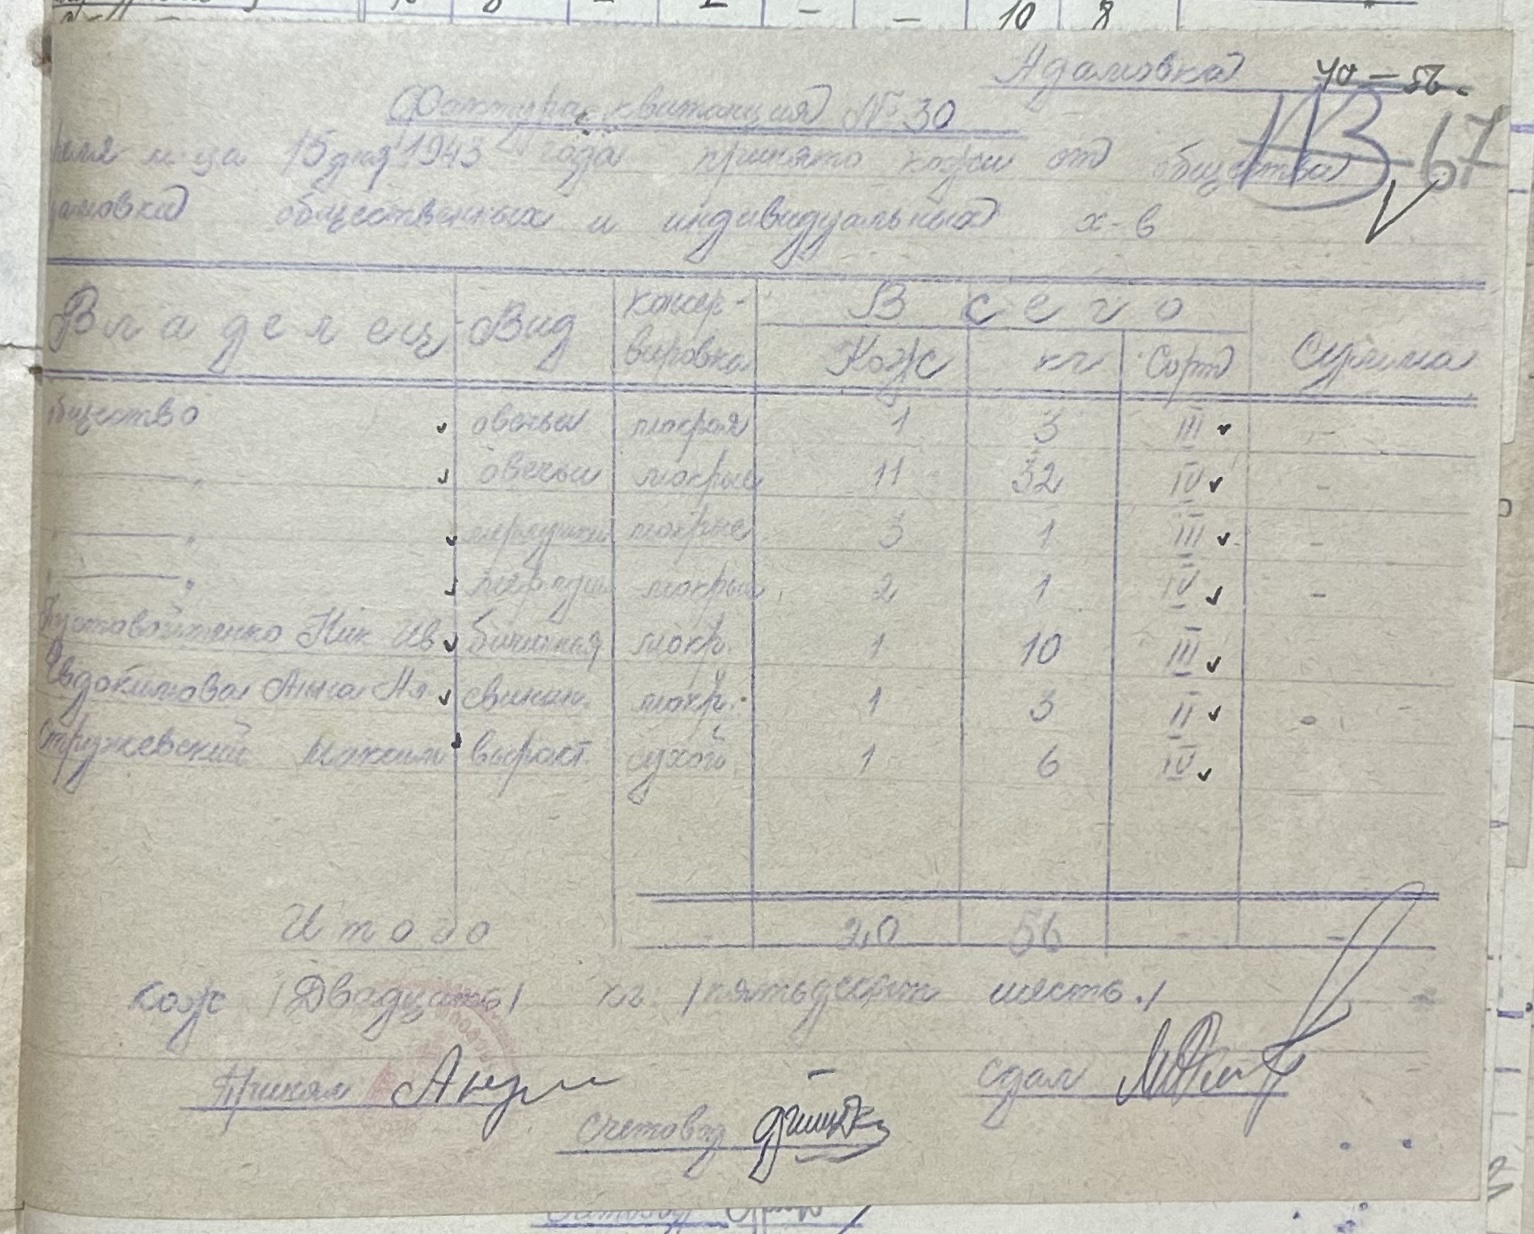 10 8
Адамовка 40-56.
Фактура квитанция № 30 113-67
реля м-ца 15 дня 1943 года принято кожи от общества
дамовка общественных и индивидуальных х-в
Владелец Вид консер- Всего Сумма
вировка Кож кг Сорт
общество овечьи мокрая 1 3 III -
—„— овечьи мокрые 11 32 IV -
—„— мерлушки мокрые 3 1 III -
—„— мерлуш мокрые 2 1 IV -
Пустовойтенко Ник Ив мокр. 1 10 III
Евдокимова Анна свиная. мокр. 1 3 II -
Стружевский Максим выраст. сухой 1 6 IV
Итого - 20 56 - -
кож /Двадцать/ кг. /пятьдесят шесть./
Принял Сдал
Счетовод